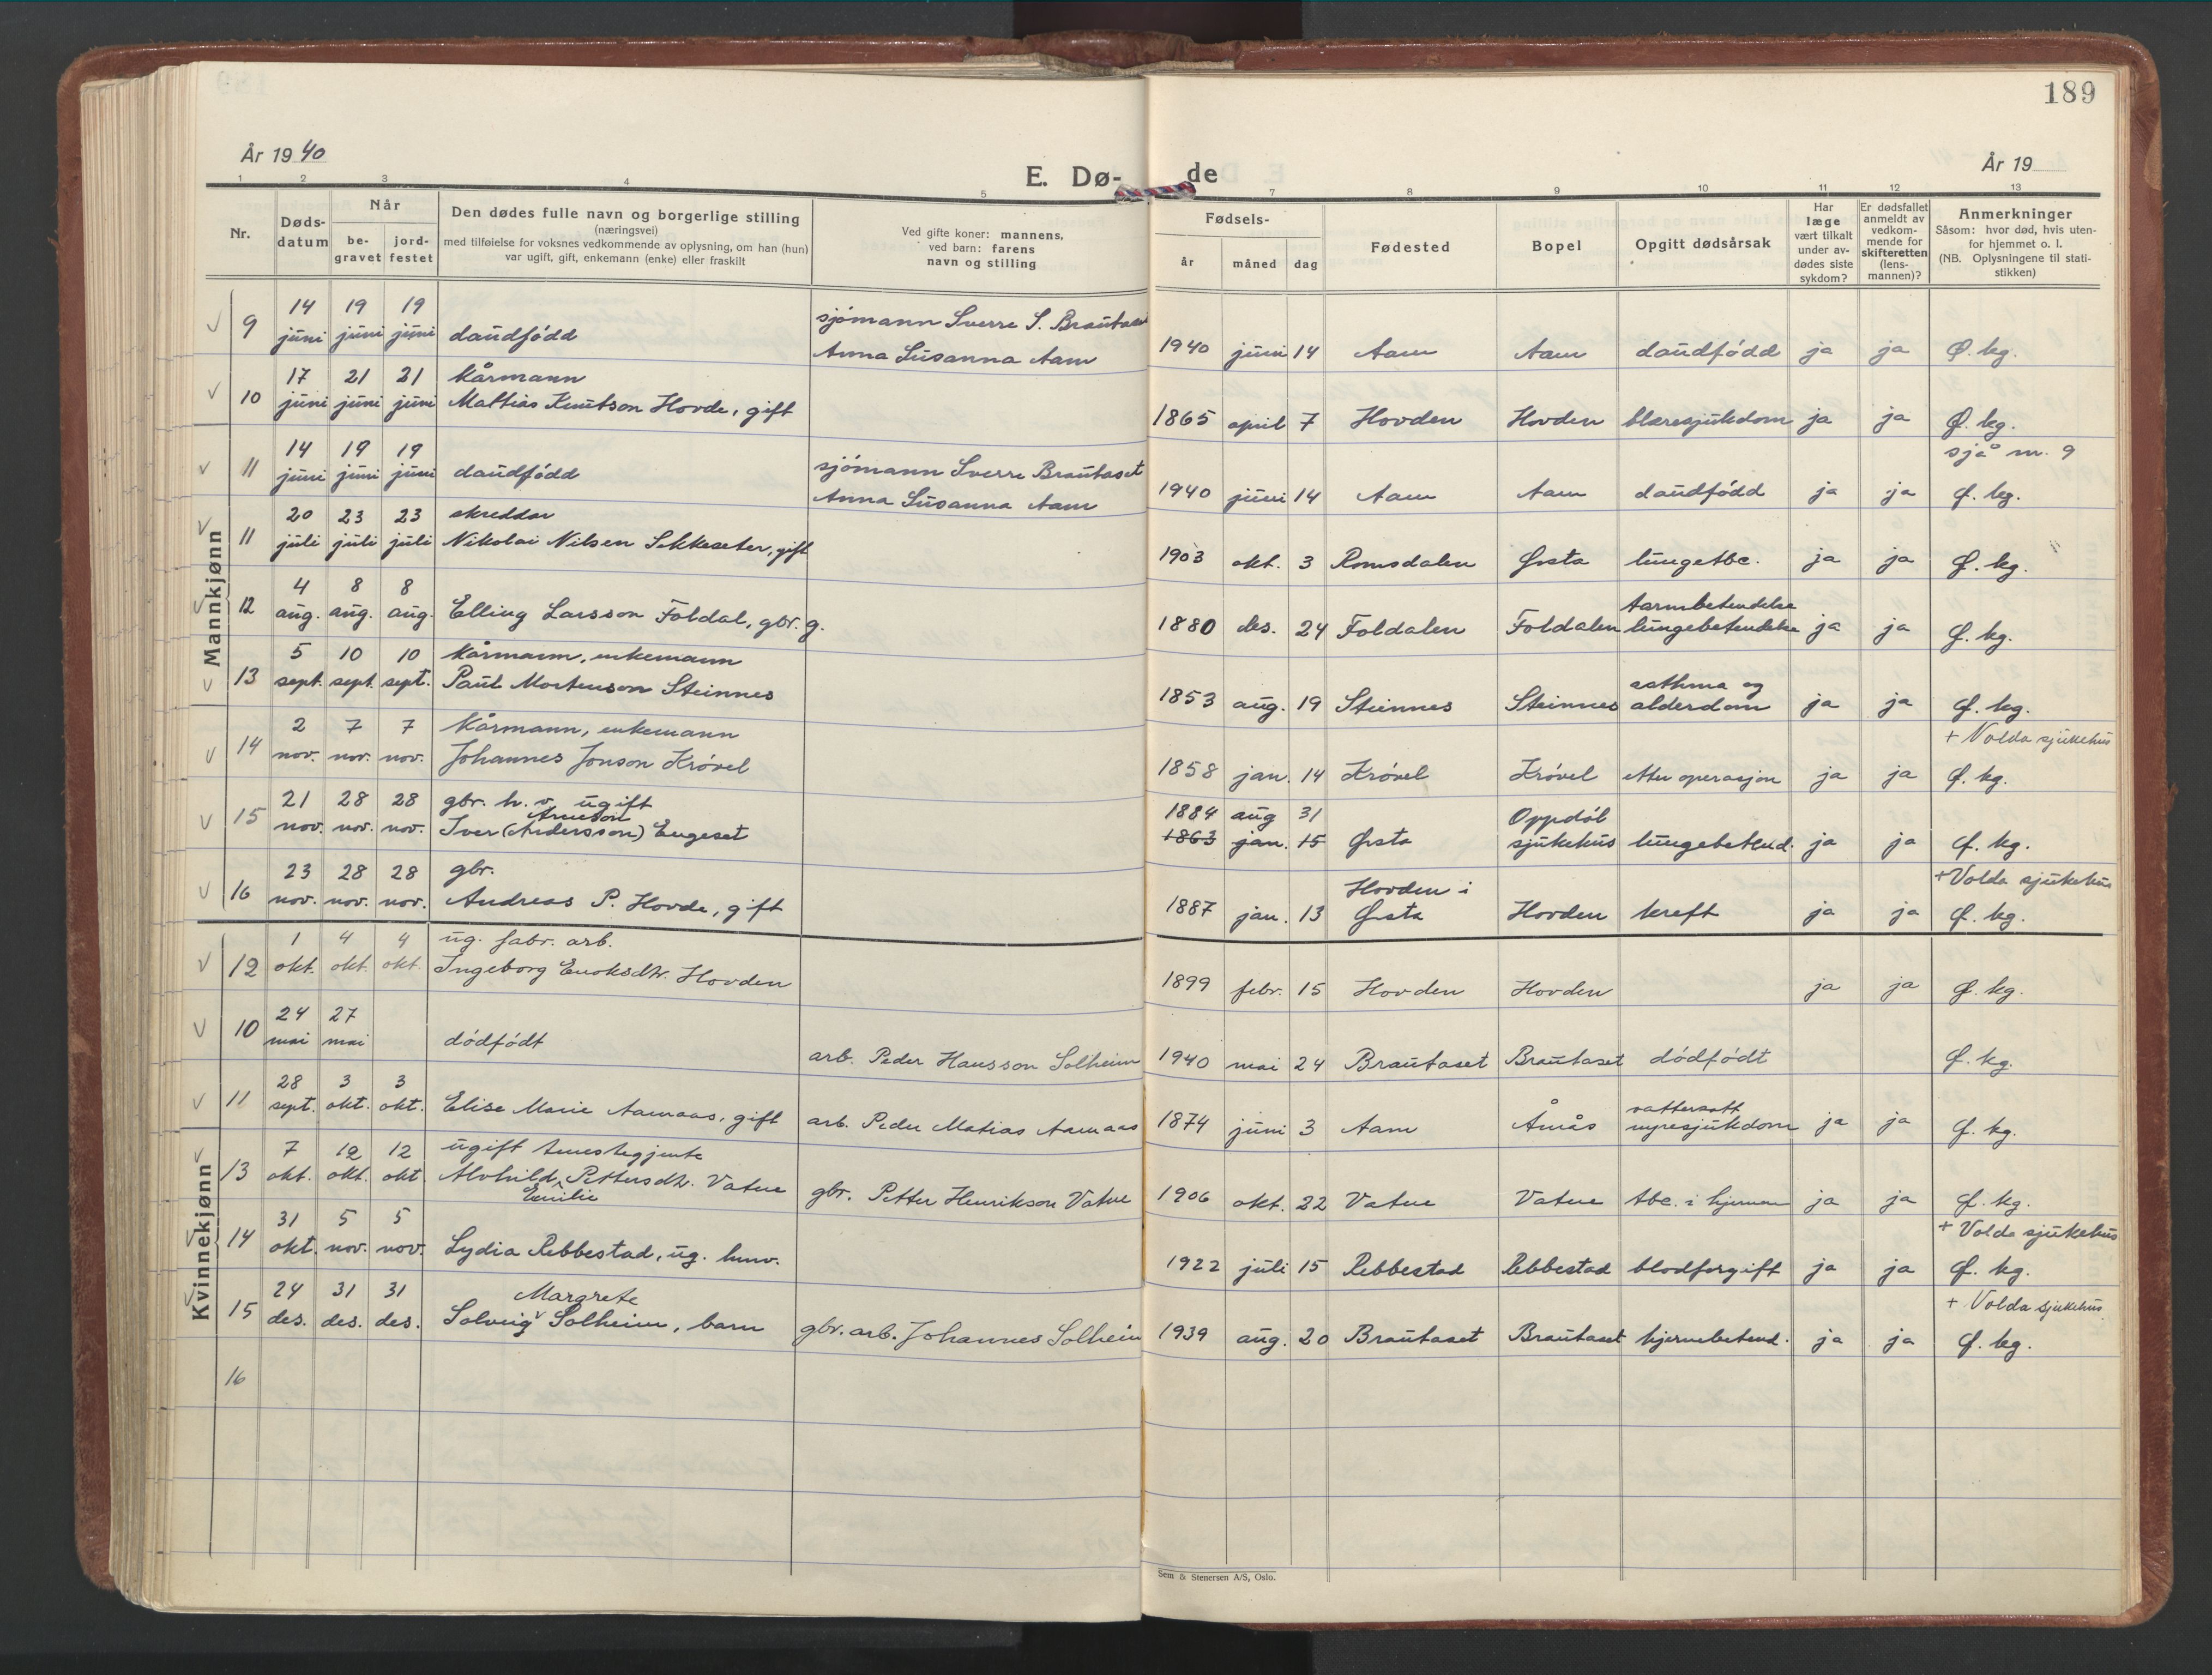 189
År 1940
E. Dø-
de
År 19
1 2 3 4 5 7 8 9 10 11 12 13
Nr.
Døds-
datum
Når
be-
gravet
jord-
festet
Den dødes fulle navn og borgerlige stilling
(næringsvei)
med tilføielse for voksnes vedkommende av oplysning, om han (hun)
var ugift, gift, enkemann (enke) eller fraskilt
Ved gifte koner: mannens,
ved barn: farens
navn og stilling
Fødsels-
år måned dag
Fødested
Bopel
Opgitt dødsårsak
Har
læge
vært tilkalt
under av-
dødes siste
sykdom?
Er dødsfallet
anmeldt av
vedkom-
mende for
skifteretten
(lens-
mannen)?
Anmerkninger
Såsom: hvor død, hvis uten-
for hjemmet o. l.
(NB. Oplysningene til stati-
stikken)
Mannkjønn
14 19 19 sjómann Sverre S. Brautaset
9 juni juni juni daudfódd Anna Susanna Aam 1940 juni 14 Aam Aam daudfódd ja ja Ø. kg.
17 21 21 Kårmann
10 juni juni juni Mattias Knutson Hovde, gift 1865 april 7 Hovden Hovden blæresjukdom ja ja Ø. kg.
sjå nr. 9
14 19 19 sjómann Sverre Brautaset
11 juni juni juni daudfódd Anna Susanna Aam 1940 juni 14 Aam Aam daudfódd ja ja Ø. kg.
20 23 23 skreddar
11 juli juli juli Nikolai Nilsen Sekkeseter, gift 1903 okt. 3 Romsdalen Ørsta lungetbc. ja ja Ø. kg.
4 8 8 tarmbetendelse
12 aug. aug. aug. Elling Larsson Foldal, gbr. g. 1880 des. 24 Foldalen Foldalen lungebetendelse ja ja Ø. kg.
5 10 10 Kårmann, enkemann asthma og
13 sept. sept. sept. Paul Mortenson Steinnes 1853 aug. 19 Steinnes Steinnes alderdom ja ja Ø. kg.
2 7 7 Kårmann, enkemann + Volda sjukehus
14 nov. nov. nov. Johannes Jonson Króvel 1858 jan. 14 Króvel Króvel etter operasjon ja ja Ø. kg.
21 28 28 gbr. h. v. ugift 1884 aug 31 Oppdól
Arneson
15 nov. nov. nov. Iver (Andersson) Engeset 1863 jan. 15 Ørsta sjukehus lungebetend. ja ja Ø. kg.
23 28 28 gbr. Hovden i + Volda sjukehus
16 nov. nov. nov. Andreas P. Hovde, gift 1887 jan. 13 Ørsta Hovden kreft ja ja Ø. kg.
Kvinnekjønn
1 4 4 ug. fabr. arb.
12 okt. okt. okt. Ingeborg Enoksdtr. Hovden 1899 febr. 15 Hovden Hovden ja ja Ø. kg.
24 27
10 mai mai dódfódt arb. Peder Hansson Solheim 1940 mai 24 Brautaset Brautaset dódfódt Ø. kg.
28 3 3 vattersott
11 sept. okt. okt. Elise Marie Aamaas, gift arb. Peder Matias Aamaas 1874 juni 3 Aam Åmås nyresjukdom ja ja Ø. kg.
7 12 12 ugift tenestegjente
13 okt. okt. okt. Alvhild Pettersdtr. Vatne gbr. Petter Henrikson Vatne 1906 okt. 22 Vatne Vatne tbc. i hjernen ja ja Ø. kg.
Emilie
31 5 5 + Volda sjukehus
14 okt. nov. nov. Lydia Rebbestad, ug. hmv. 1922 juli 15 Rebbestad Rebbestad blodforgift ja ja Ø. kg.
24 31 31 Margrete + Volda sjukehus
15 des. des. des. Solveig Solheim, barn gbr. arb. Johannes Solheim 1939 aug. 20 Brautaset Brautaset hjernebetend. ja ja Ø. kg.
16
Sem & Stenersen A/S, Oslo.